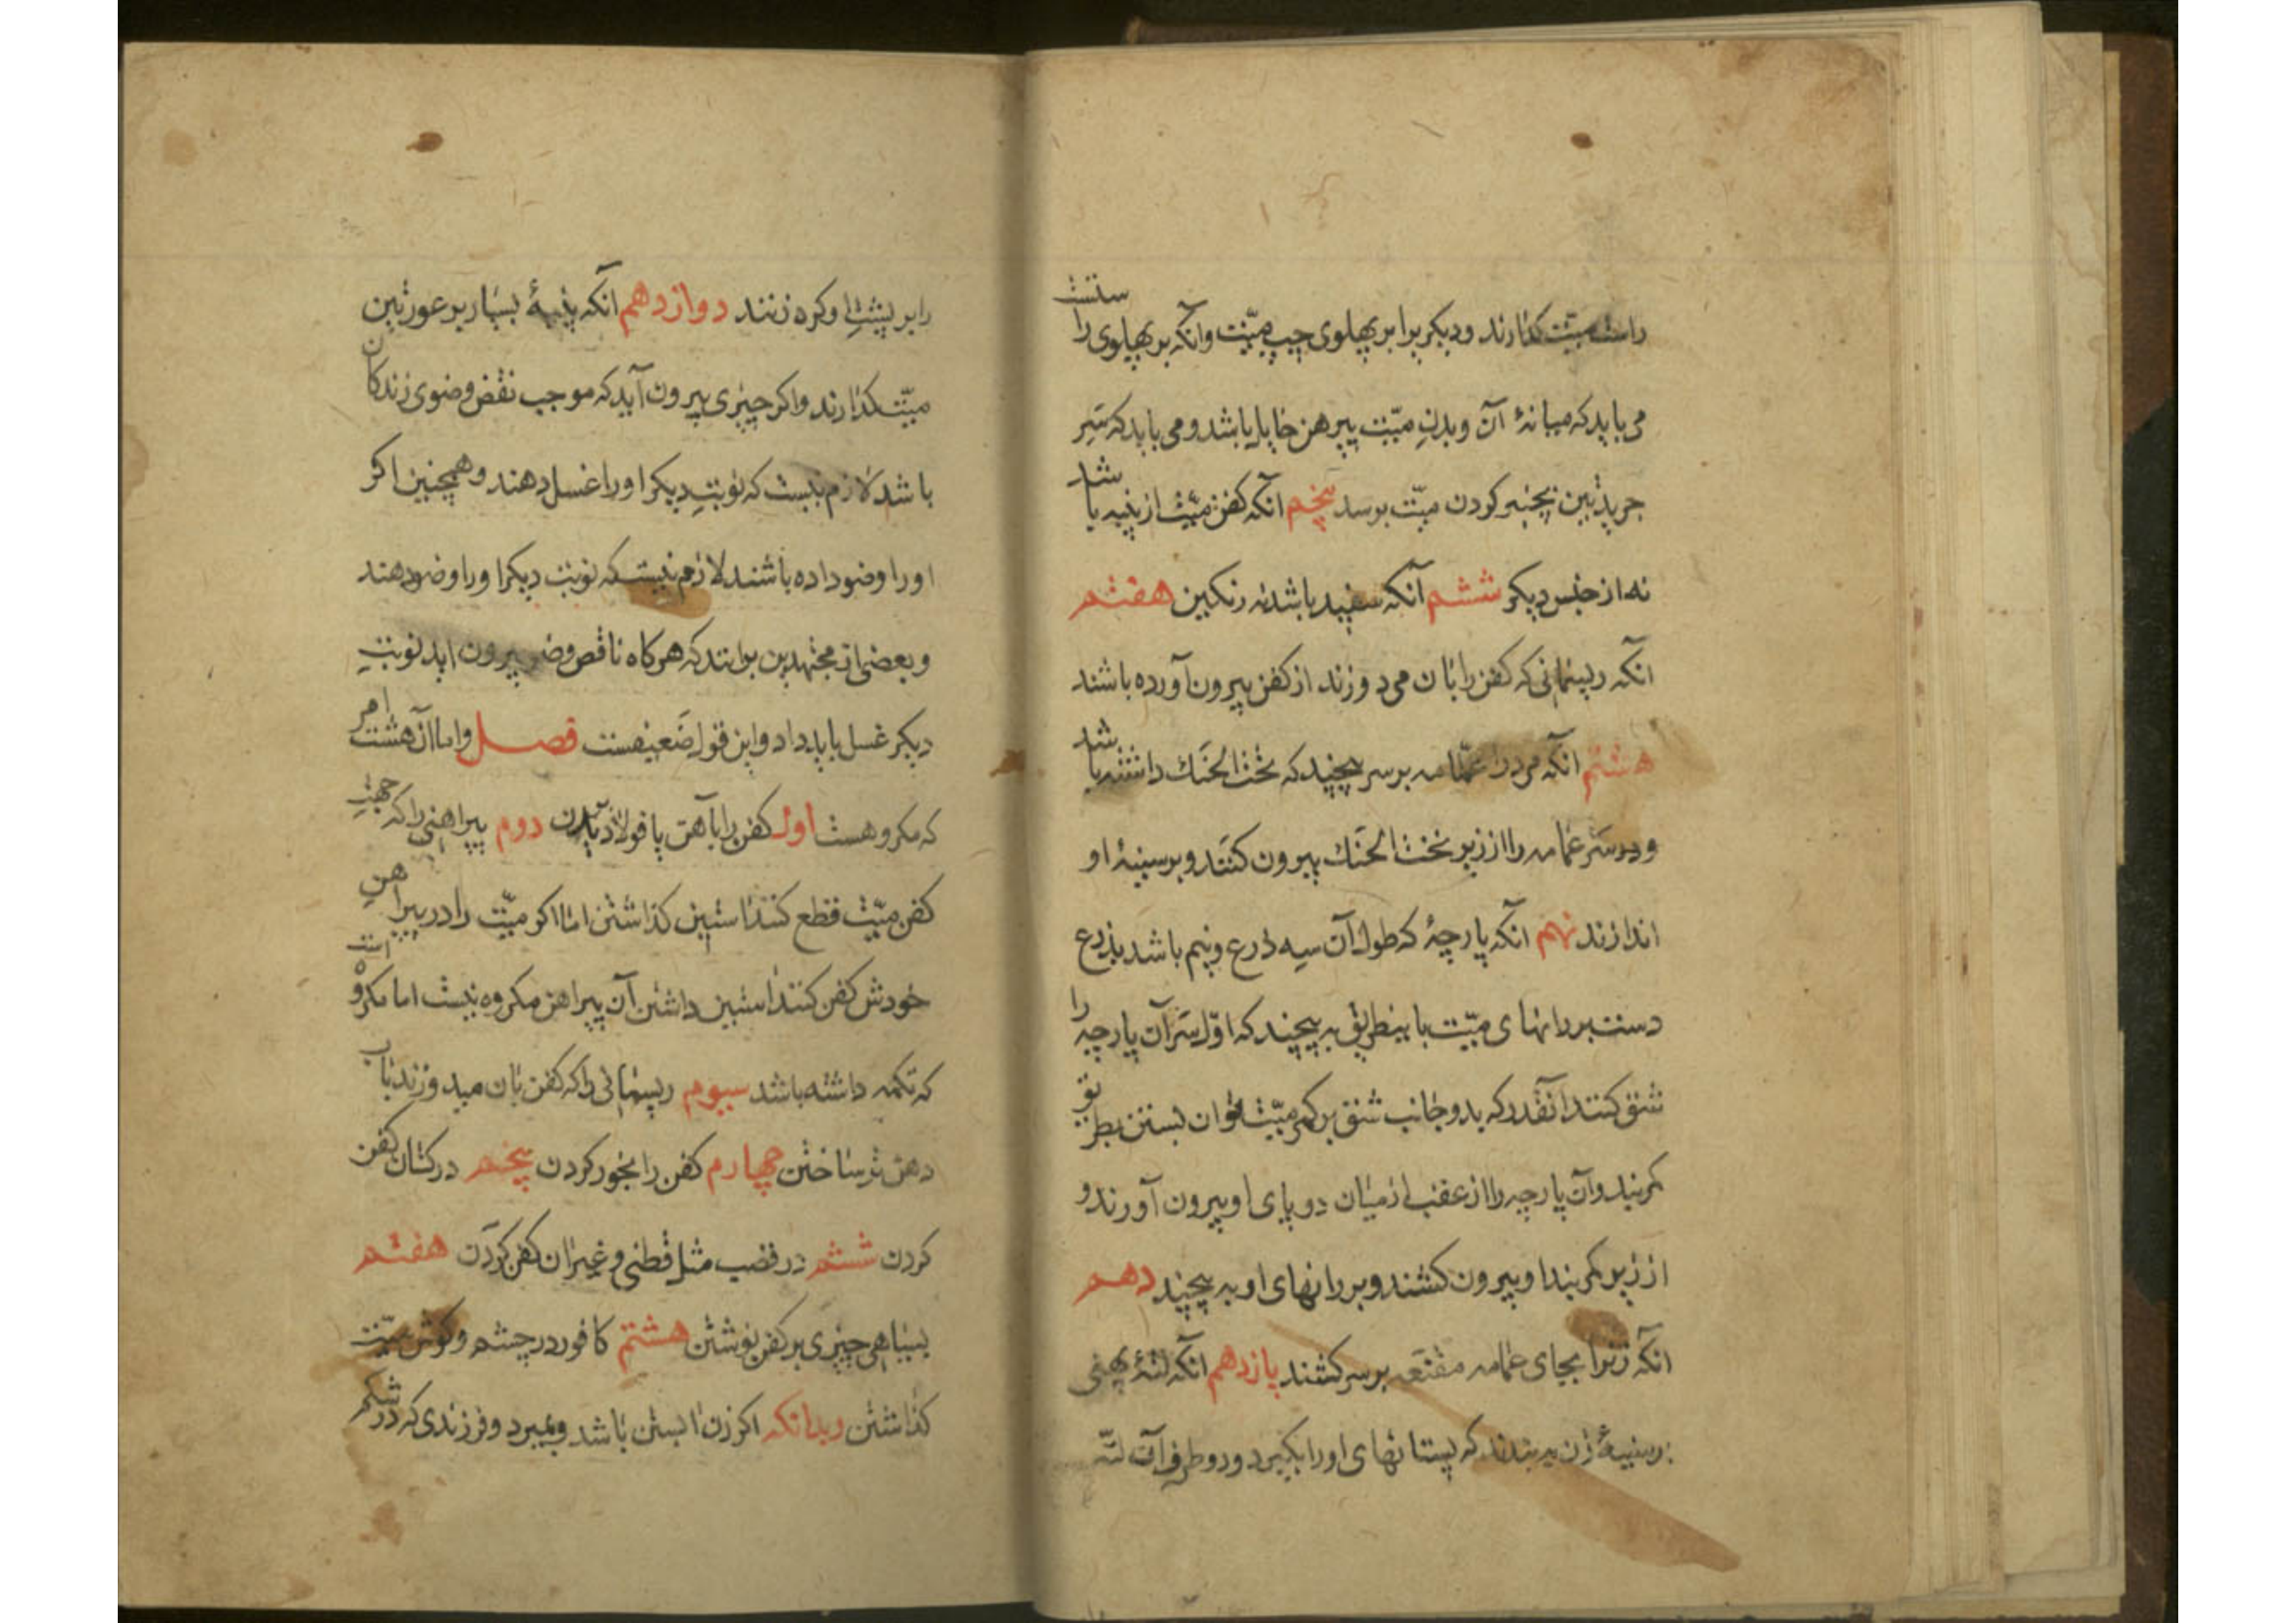 راست میّت کذارند ودیکر برا بر پهلوی چپ میّت وآنکه بر پهلوی راستست
می باید که میانهٔ آن وبدنِ میّت پیرهن حایل باشد ومی باید که سَرِ
جریدتین بچنبر کردن میّت برسد پنجم آنکه کفن میّت از پنبه باشد
نه از جنس دیکر ششم آنکه سفید باشد نه رنکین هفتم
انکه ریسمانی که کفن را بان می دوزند از کفن بیرون آورده باشند
هشتم انکه مرد را عمّامه بر سر پیچند که تحت الحنَك داشته باشد
ودو سَر عمامه را از زیر تحت الحنَك بیرون کنَند وبر سینهٔ او
اندازند نهم انکه پارچهٔ که طول آن سه ذرع ونیم باشد بذرع
دست بر رانهای میّت باینطریق به پیچند که اوّل سَر آن پارچه را
شق کنند انقدر که بدو جانب شق بر کمر میّت توان بستن بطریق
کمربند وآن پارچه را از عقب از میان دو پای او بیرون آورند و
از زیر کمربند او بیرون کشند وبر رانهای او به پیچند دهم
انکه زنرا بجای عمامه مقنَعه بر سر کشند یازدهم انکه لتهٔ پهنی
بر سینهٔ زن به بندند که پستانهای اورا بکیرد ودو طرف آن لتّه
را بر پشتِ او کره زنند دوازدهم انکه پنبهٔ بسیار بر عورتین
میّت کذارند واکر چیزی بیرون آید که موجب نقض وضوی زندکان
باشد لازم نیست که نوبتِ دیکر اورا غسل دهند وهمچنین اکر
اورا وضو داده باشند لازم نیست که نوبت دیکر اورا وضو دهند
وبعضی از مجتهدین برانند که هر کاه ناقص وضو بیرون اید نوبتِ
دیکر غسل باید داد واین قول ضَعیفست فصل واما آن هشت امر
که مکروهست اول کفن را بآهن یا فولاد بریدن دوم پیراهنی را که جهتِ
کفن میّت قطع کنند استین کذاشتن اما اکر میّت را در پیراهنِ
خودش کفن کنند استین داشتن آن پیراهن مکروه نیست اما مکروه است
که تکمه داشته باشد سیوم ریسمانی را که کفن بان میدوزند باب
دهن تر ساختن چهارم کفن را بخور کردن پنجم در کتان کفن
کردن ششم در قصب مثل قطنی وغیر ان کفن کردن هفتم
بسیاهی چیزی بر کفن نوشتن هشتم کافور در چشم وکوش میّت
کذاشتن وبدانکه اکر زن ابستن باشد وبمیرد وفرزندی که در شکم